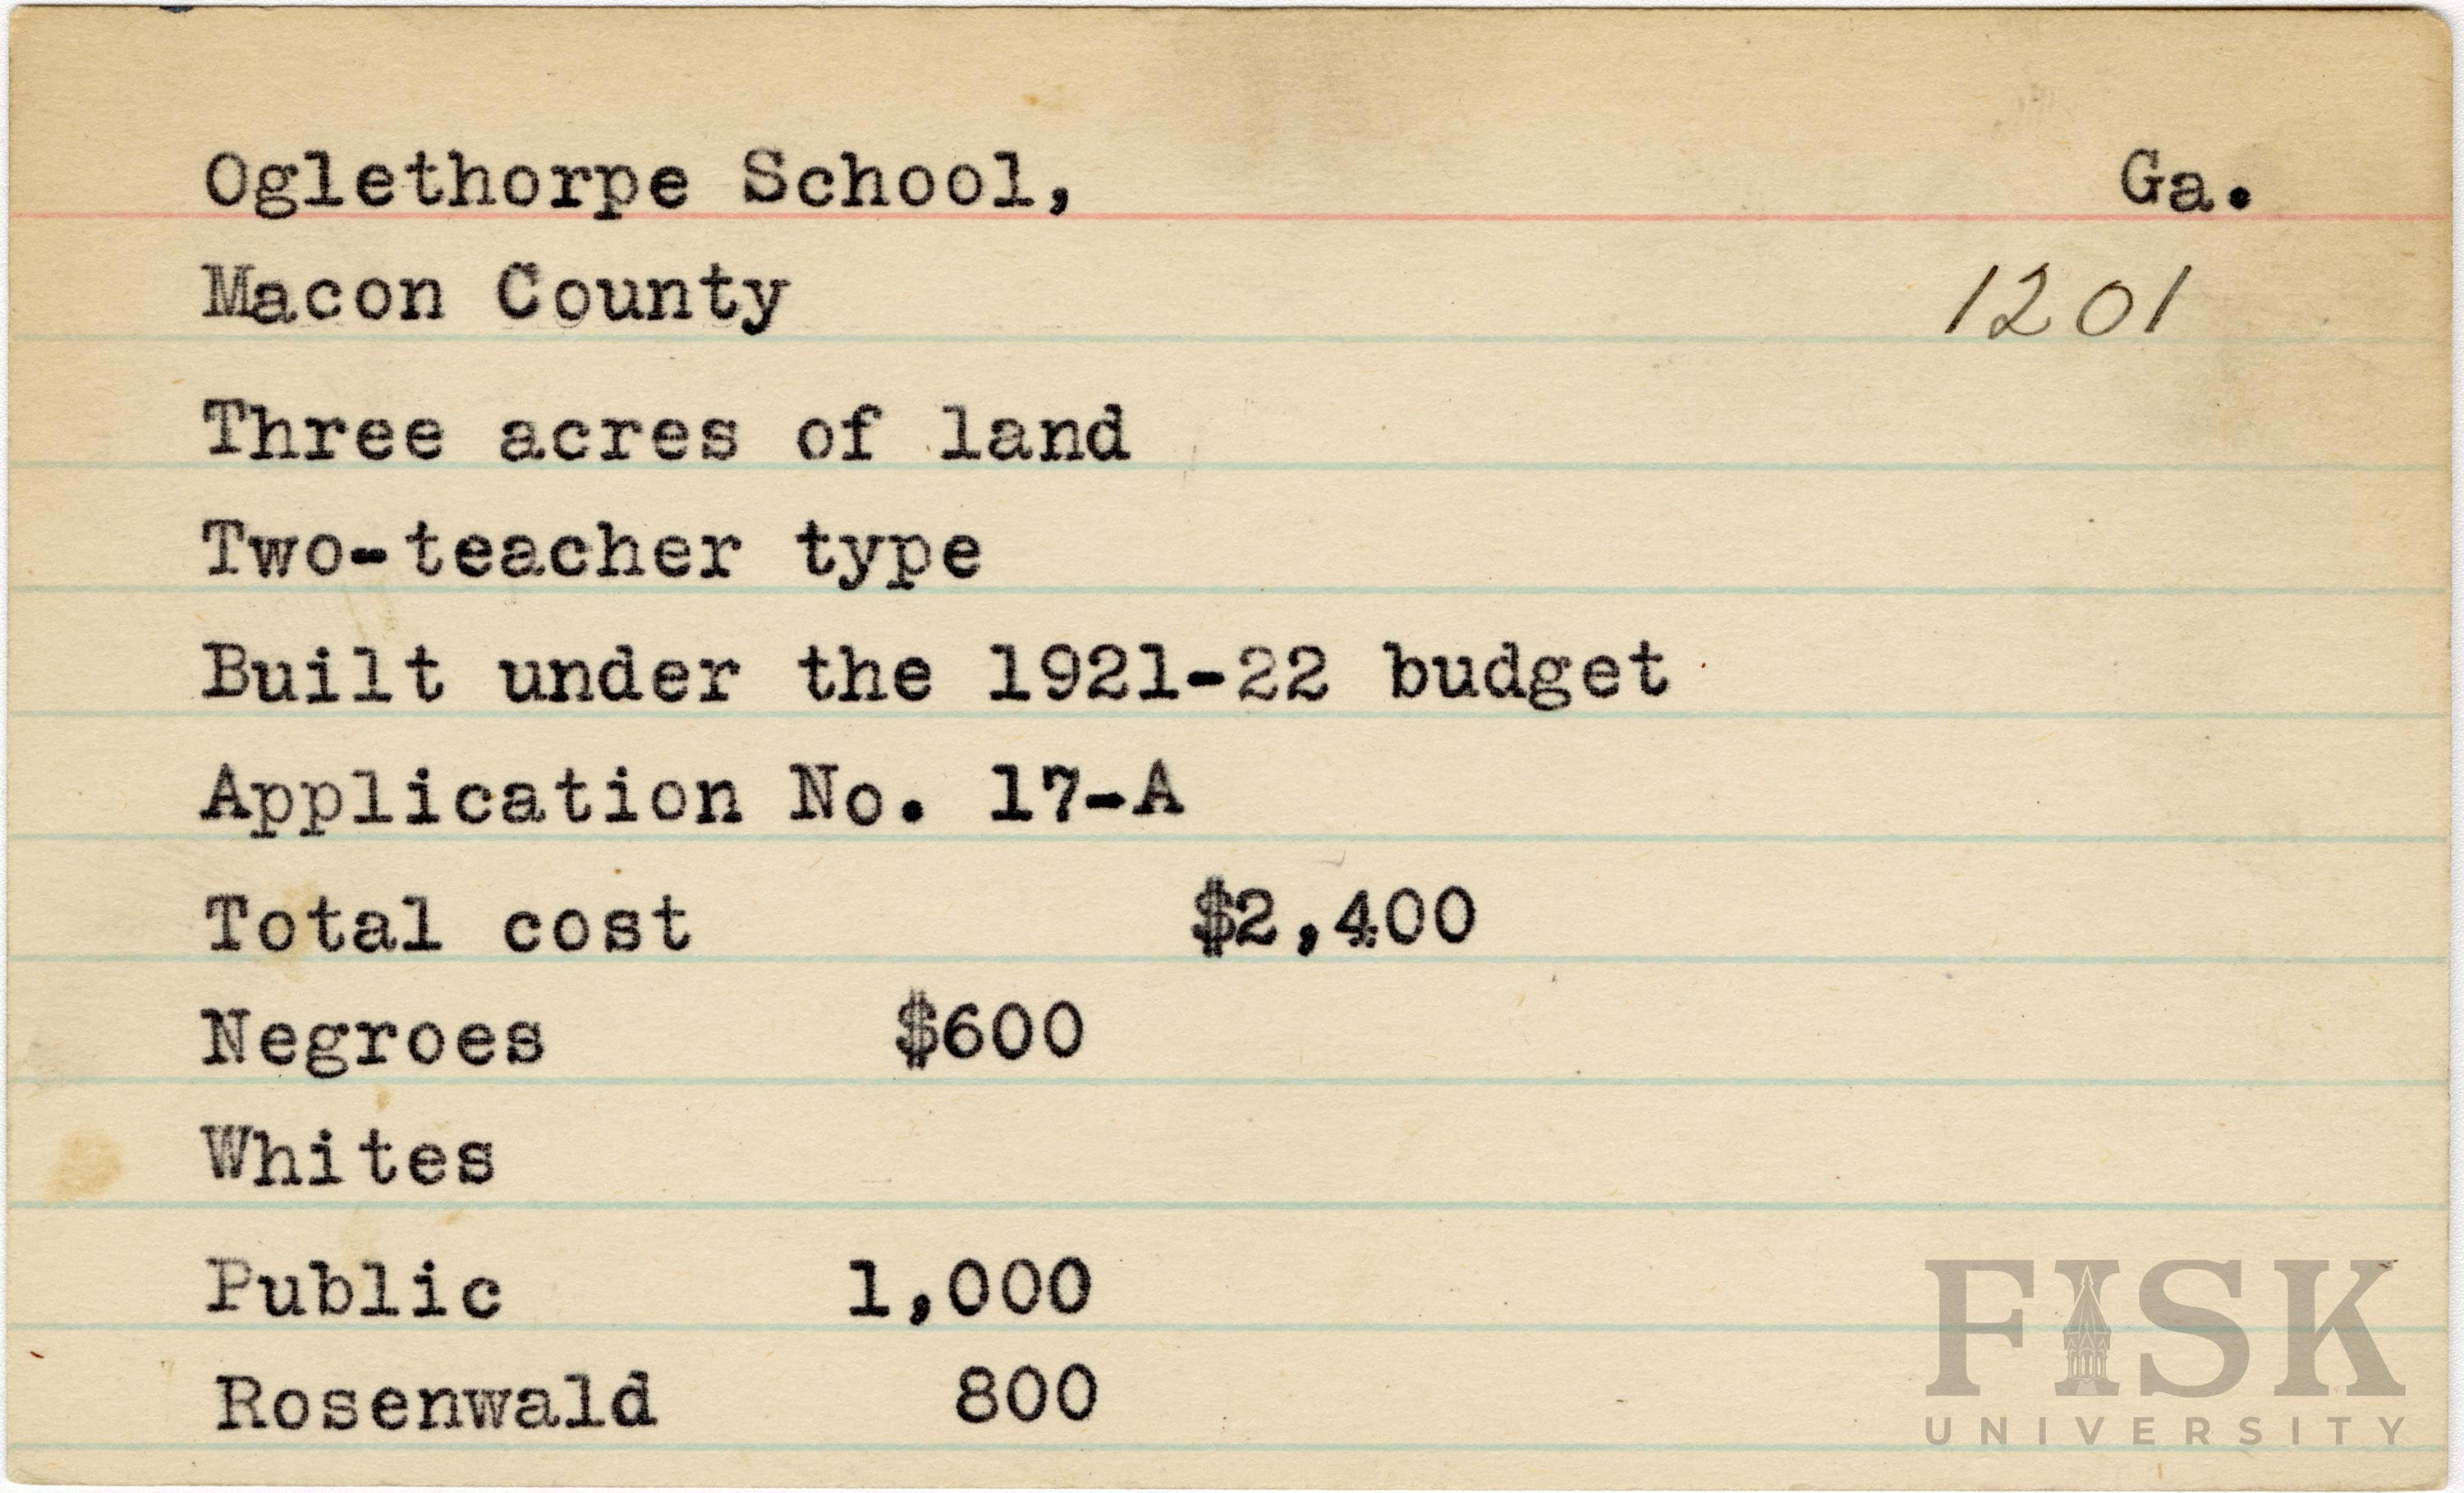 Oglethorpe School, Ga.
Macon County 1201
Three acres of land
Two-teacher type
Built under the 1921-22 budget
Application No. 17-A
Total cost $2,400
Negroes $600
Whites
Public 1,000
Rosenwald 800
FISK
UNIVERSITY